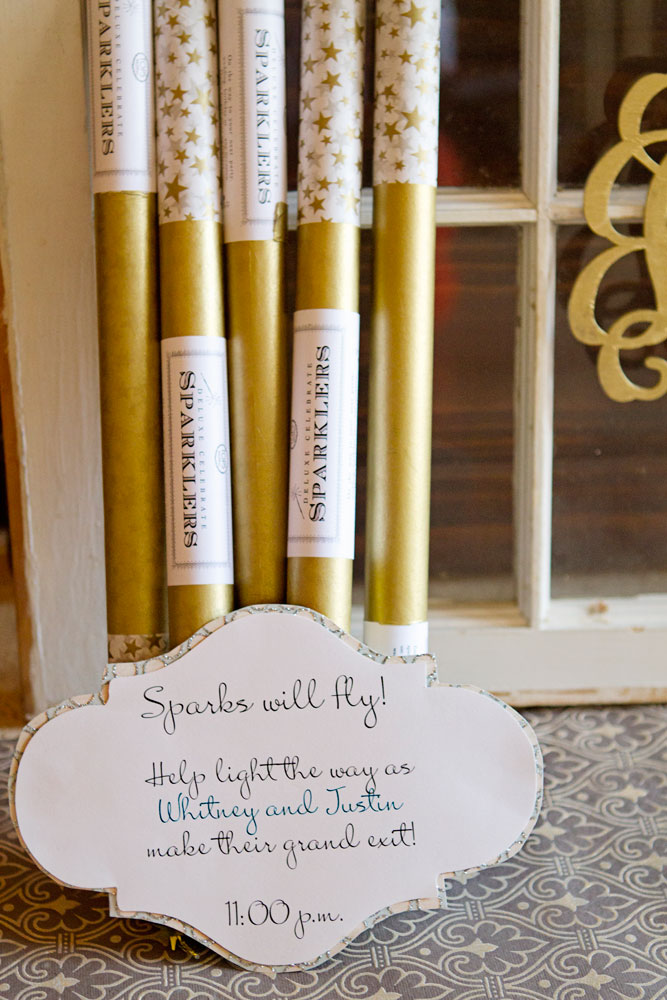 DELUXE CELEBRATE
SPARKLERS
SPARKLERS
DELUXE CELEBRATE
SPARKLERS
DELUXE CELEBRATE
SPARKLERS
Sparks will fly!
Help light the way as
Whitney and Justin
make their grand exit!
11:00 p.m.